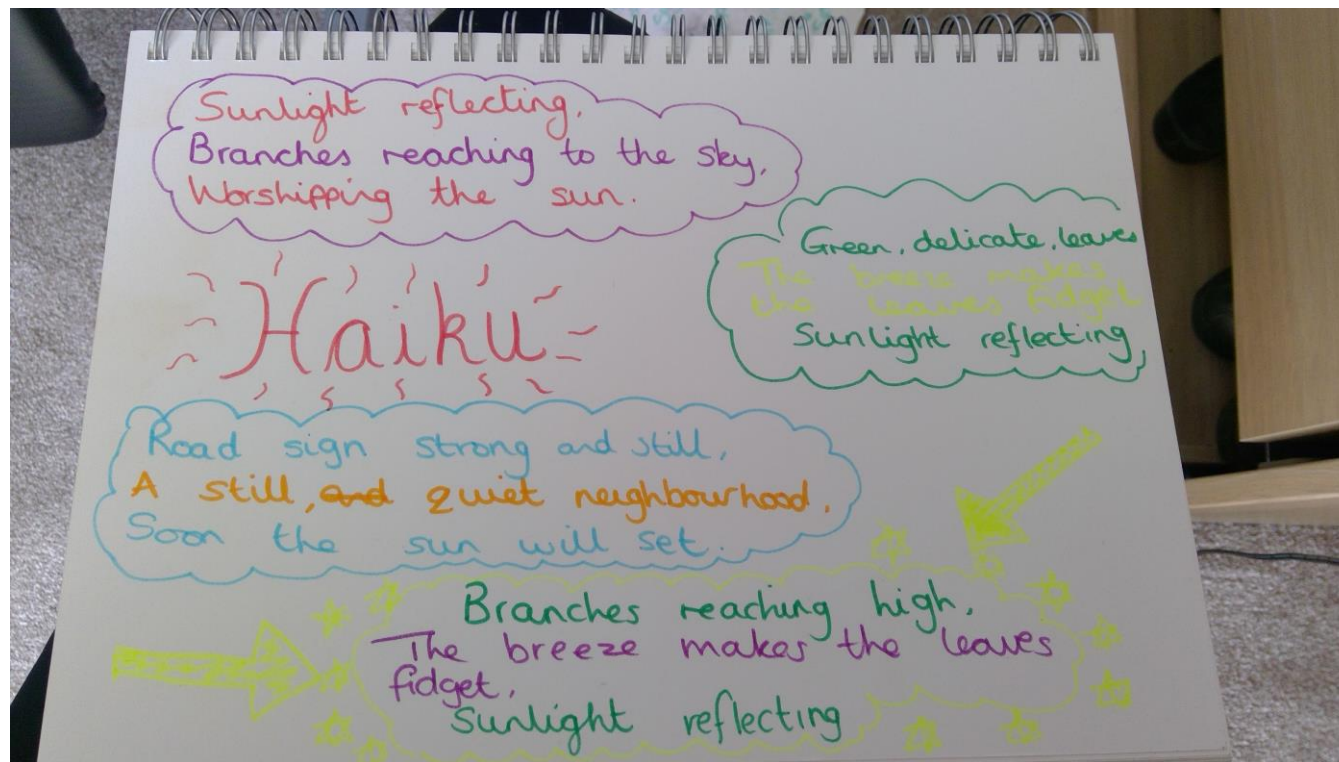 Sunlight reflecting,
Branches reaching to the sky,
Worshipping the sun.
Green, delicate, leaves
The breeze makes
the leaves fidget
Sunlight reflecting,
Haiku
Road sign strong and still,
A still, and quiet neighbourhood,
Soon the sun will set.
Branches reaching high,
The breeze makes the leaves
fidget,
Sunlight reflecting